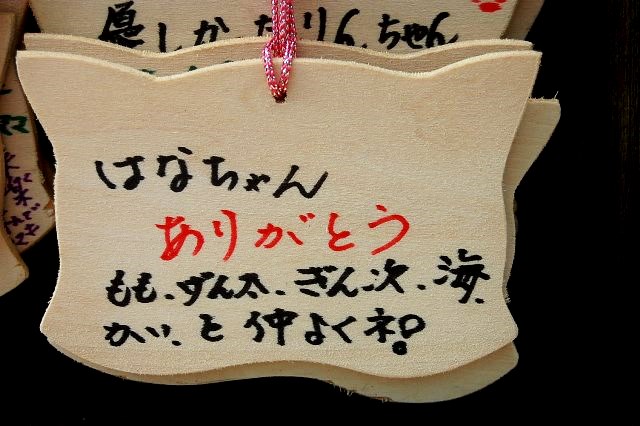 しか たりんちゃん
ママ
はなちゃん
ありがとう
もも、ずん太、ぎん次、海、
かい、と仲よくネ。